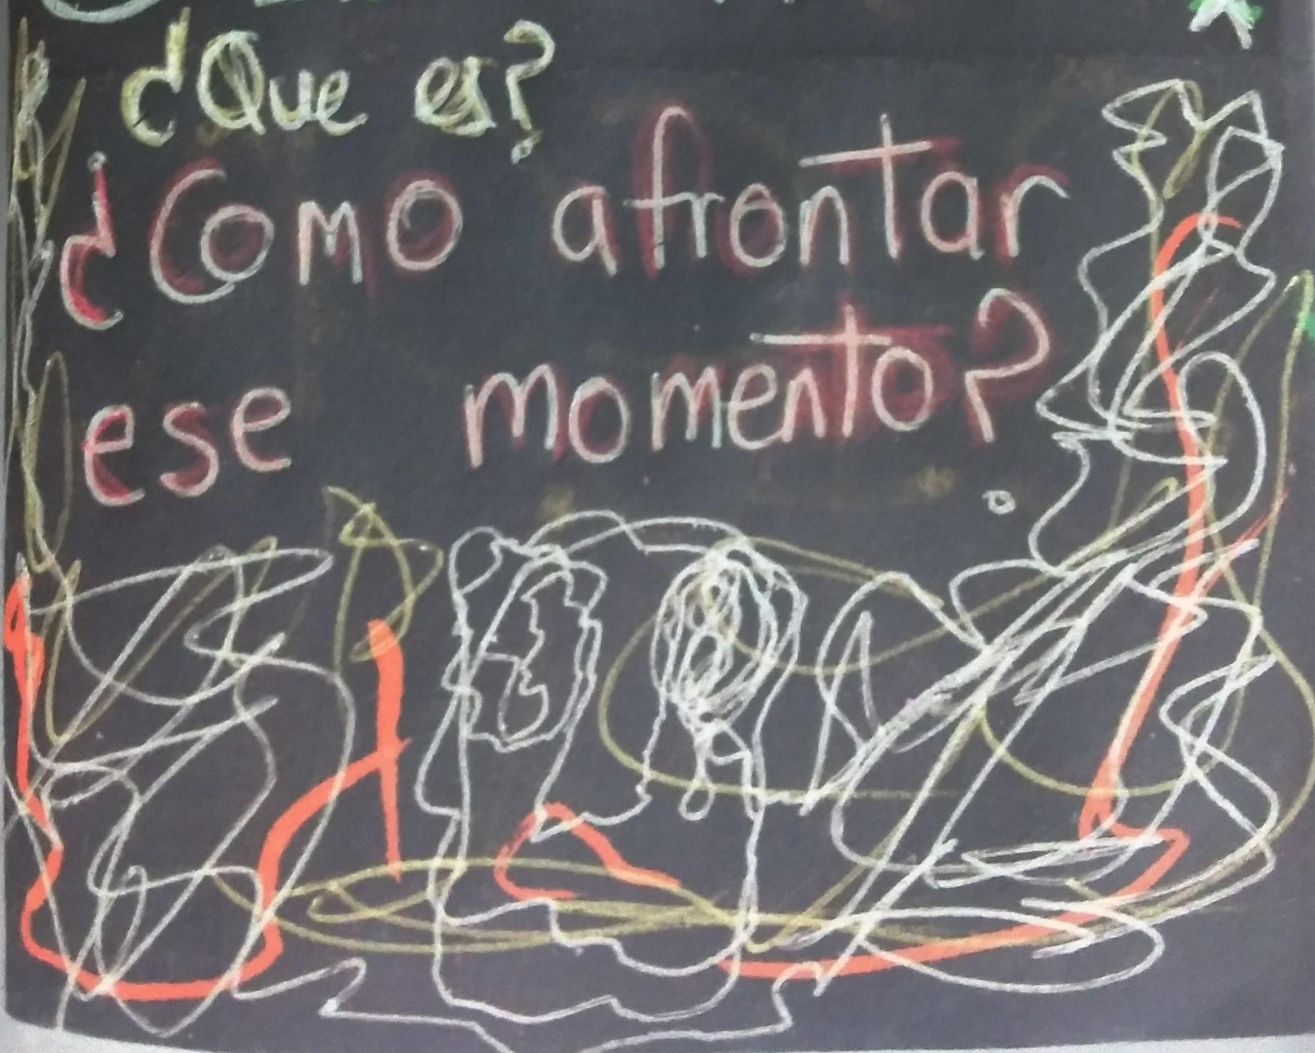 ¿Que es?
¿Como afrontar
ese momento?